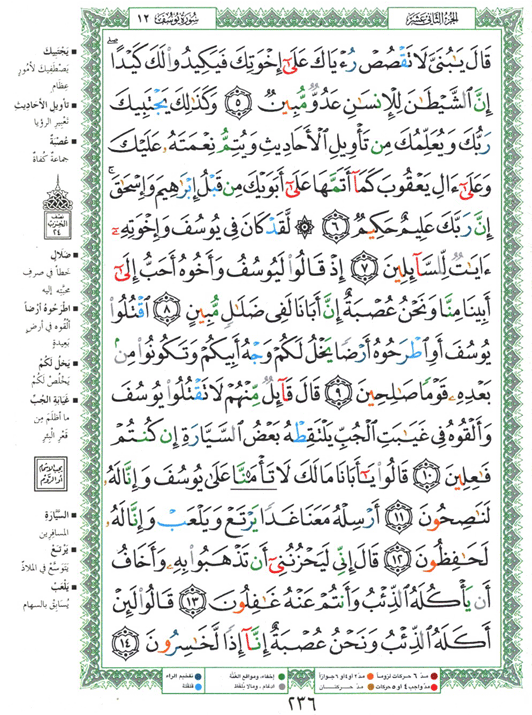 الجزء الثاني عشر
سورة يوسف ١٢
قَالَ يَٰبُنَيَّ لَا تَقْصُصْ رُءْيَاكَ عَلَىٰٓ إِخْوَتِكَ فَيَكِيدُوا۟ لَكَ كَيْدًا ۖ
إِنَّ ٱلشَّيْطَٰنَ لِلْإِنسَٰنِ عَدُوٌّ مُّبِينٌ ٥ وَكَذَٰلِكَ يَجْتَبِيكَ
رَبُّكَ وَيُعَلِّمُكَ مِن تَأْوِيلِ ٱلْأَحَادِيثِ وَيُتِمُّ نِعْمَتَهُۥ عَلَيْكَ
وَعَلَىٰٓ ءَالِ يَعْقُوبَ كَمَآ أَتَمَّهَا عَلَىٰٓ أَبَوَيْكَ مِن قَبْلُ إِبْرَٰهِيمَ وَإِسْحَٰقَ ۚ
إِنَّ رَبَّكَ عَلِيمٌ حَكِيمٌ ٦ ۞ لَّقَدْ كَانَ فِى يُوسُفَ وَإِخْوَتِهِۦٓ
ءَايَٰتٌ لِّلسَّآئِلِينَ ٧ إِذْ قَالُوا۟ لَيُوسُفُ وَأَخُوهُ أَحَبُّ إِلَىٰٓ
أَبِينَا مِنَّا وَنَحْنُ عُصْبَةٌ إِنَّ أَبَانَا لَفِى ضَلَٰلٍ مُّبِينٍ ٨ ٱقْتُلُوا۟
يُوسُفَ أَوِ ٱطْرَحُوهُ أَرْضًا يَخْلُ لَكُمْ وَجْهُ أَبِيكُمْ وَتَكُونُوا۟ مِنۢ
بَعْدِهِۦ قَوْمًا صَٰلِحِينَ ٩ قَالَ قَآئِلٌ مِّنْهُمْ لَا تَقْتُلُوا۟ يُوسُفَ
وَأَلْقُوهُ فِى غَيَٰبَتِ ٱلْجُبِّ يَلْتَقِطْهُ بَعْضُ ٱلسَّيَّارَةِ إِن كُنتُمْ
فَٰعِلِينَ ١٠ قَالُوا۟ يَٰٓأَبَانَا مَا لَكَ لَا تَأْمَ۫نَّا عَلَىٰ يُوسُفَ وَإِنَّا لَهُۥ
لَنَٰصِحُونَ ١١ أَرْسِلْهُ مَعَنَا غَدًا يَرْتَعْ وَيَلْعَبْ وَإِنَّا لَهُۥ
لَحَٰفِظُونَ ١٢ قَالَ إِنِّى لَيَحْزُنُنِىٓ أَن تَذْهَبُوا۟ بِهِۦ وَأَخَافُ
أَن يَأْكُلَهُ ٱلذِّئْبُ وَأَنتُمْ عَنْهُ غَٰفِلُونَ ١٣ قَالُوا۟ لَئِنْ
أَكَلَهُ ٱلذِّئْبُ وَنَحْنُ عُصْبَةٌ إِنَّآ إِذًا لَّخَٰسِرُونَ ١٤
يَجْتَبِيكَ
يَصْطَفِيكَ لأمُورٍ
عِظَام
تأويل الأحاديث
تَعْبِير الرؤيا
عُصْبَةٌ
جماعة كُفَاة
نصف
الحزب
٢٤
ضَلالٍ
خطأ في صرف
محبّته إليه
اطْرَحُوهُ أَرْضاً
ألْقُوه في أرضٍ
بَعِيدةٍ
يَخْلُ لَكُمْ
يَخْلُصْ لَكُمْ
غَيَابَةِ الجُبِّ
ما أظلَمَ مِن
قَعْرِ البِئرِ
السَّيَّارَةِ
المسافِرين
يَرْتَعْ
يَتَوسَّعْ في الملاذّ
يَلْعَبْ
يُسَابِقْ بالسِّهام
مدّ ٦ حركات لزوماً
مدّ ٢ أو ٤ أو ٦ جوازاً
إخفاء، ومواقع الغُنَّة
تفخيم الراء
مدّ واجب ٤ أو ٥ حركات
مدّ حركتان
ادغام، وما لا يُلفَظ
قلقلة
٢٣٦